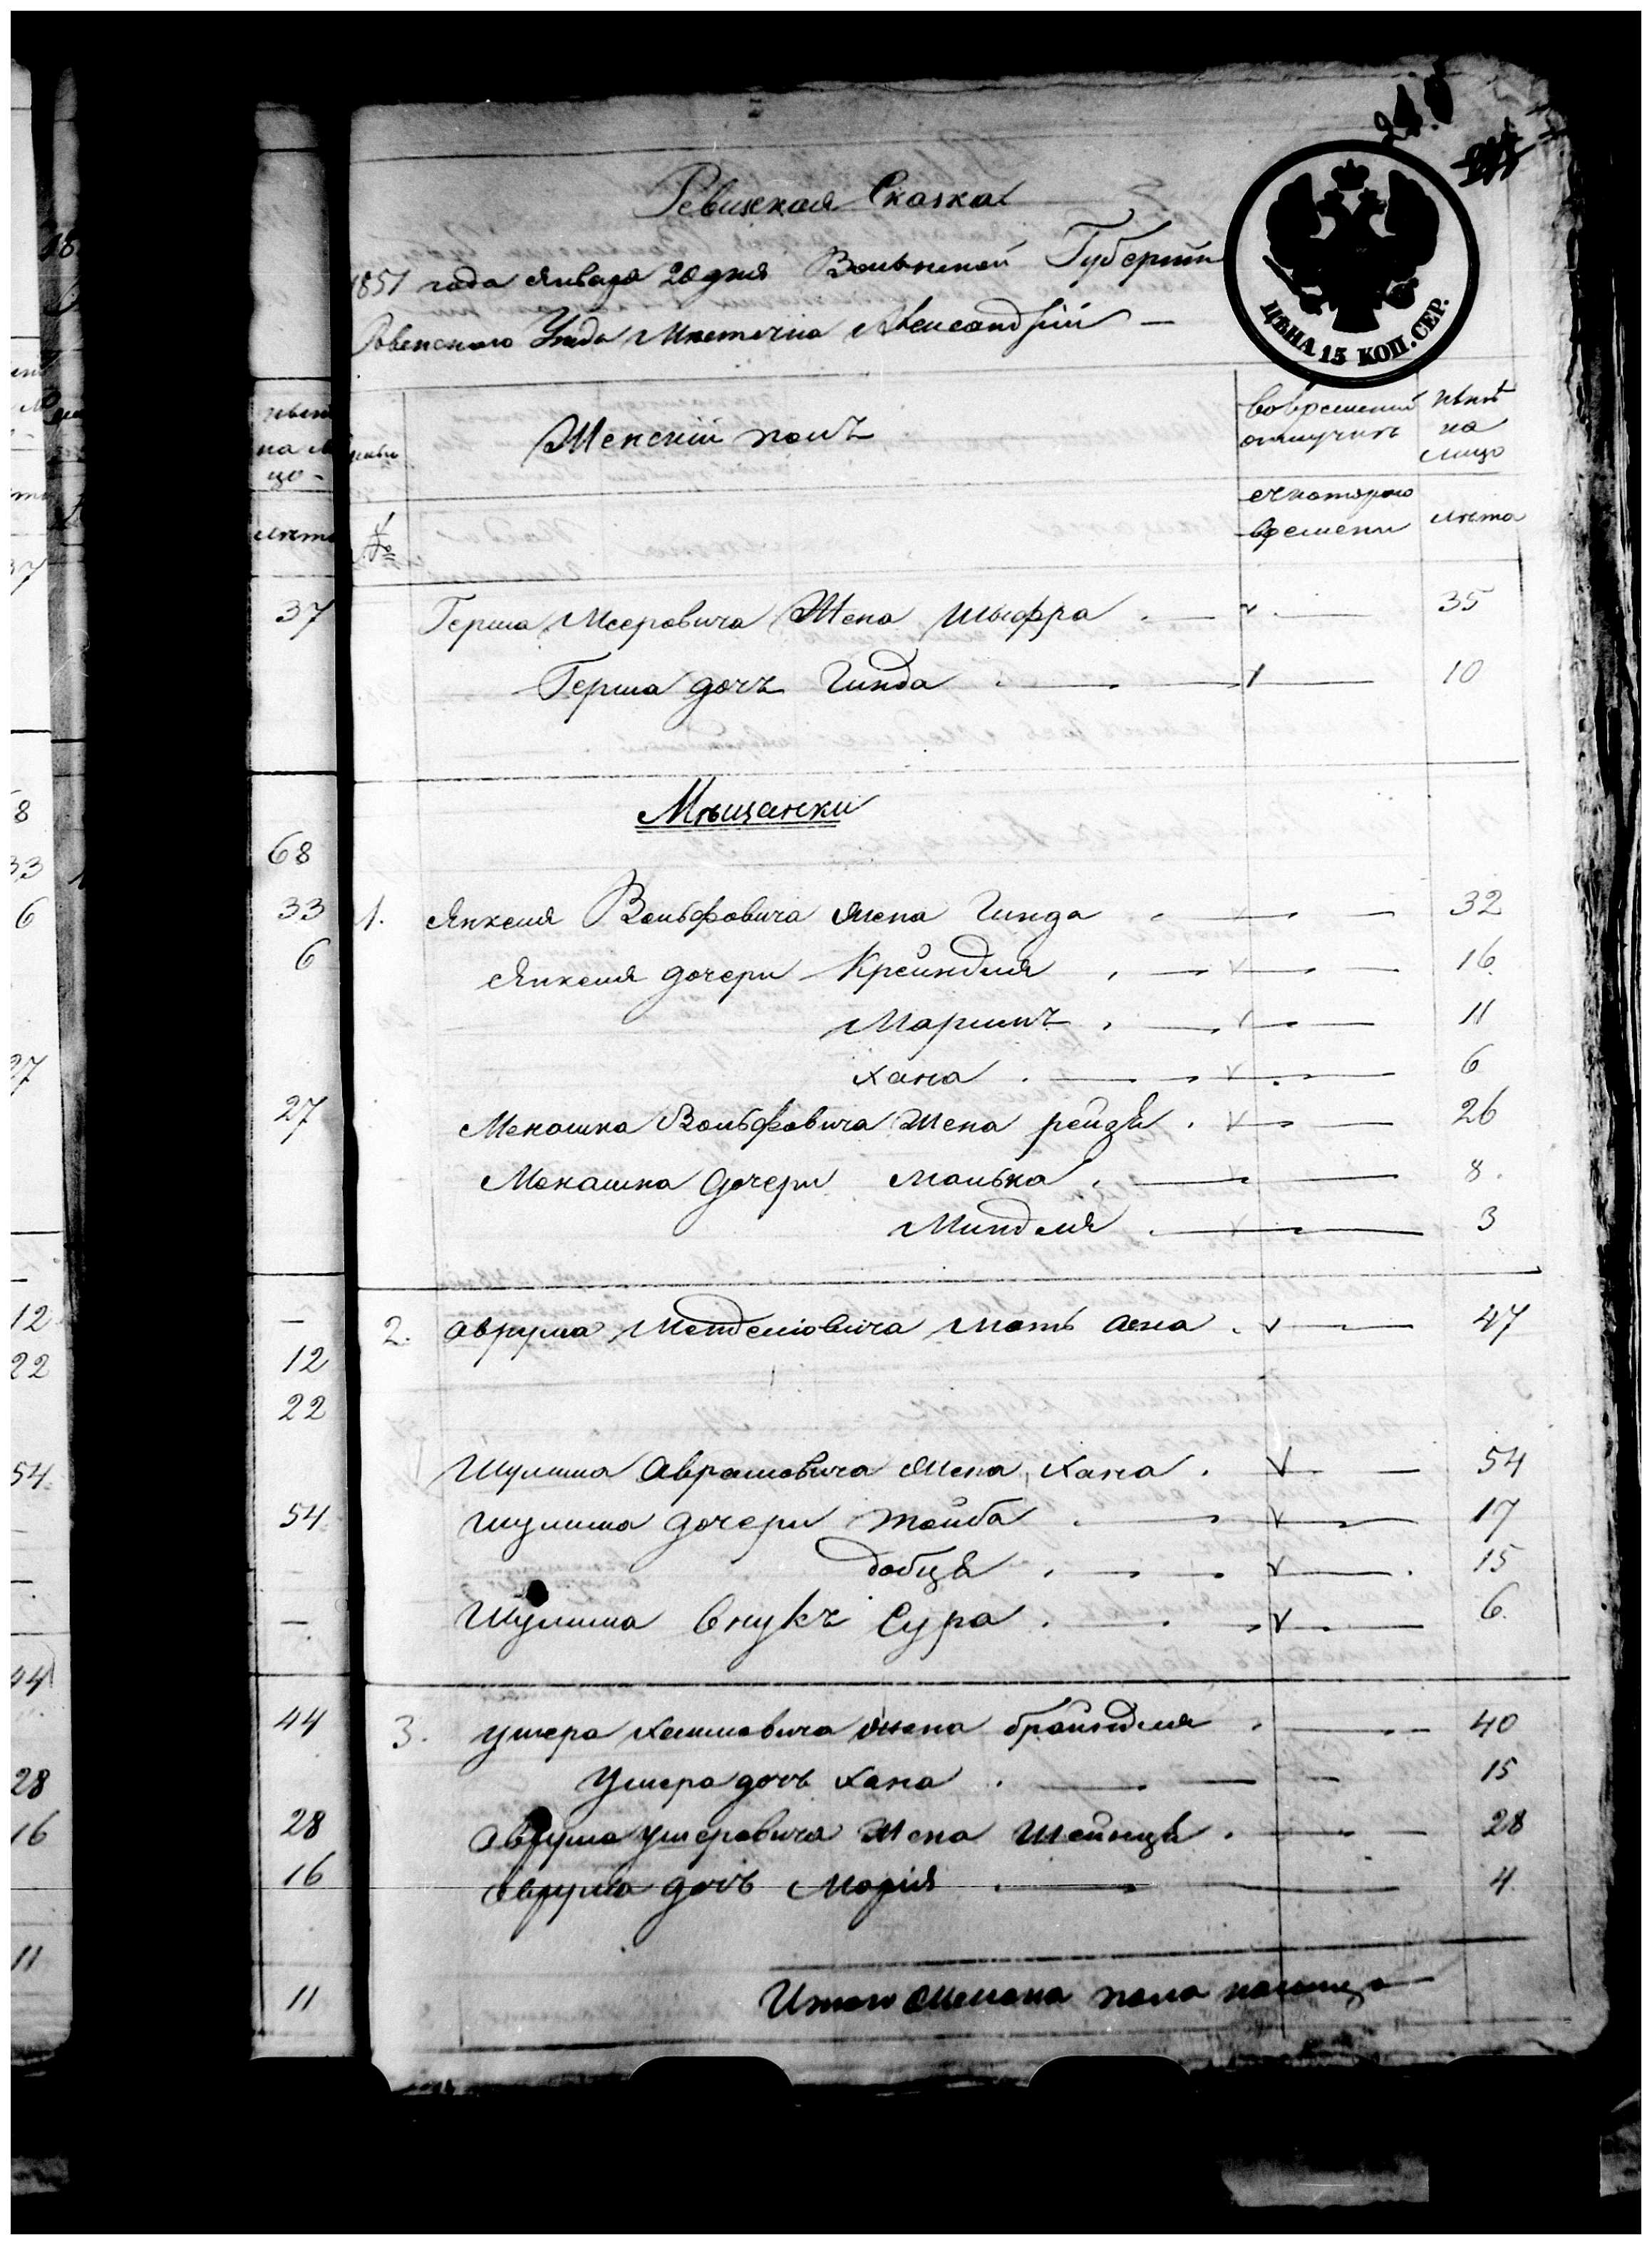 Ревизская Сказка
1851 года января 20 дня Волынской Губернiи
Ровенского Уезда Местечка Александрiи —
ЦѢНА 15 КОП. СЕР.
Женскiй полъ
во временной отлучкѣ
нынѣ на лицо
№
съ котораго времени
лѣта
37
Герша Мееровича Жена Шыфра 35
Герша дочъ Гинда 10
Мѣщанки
68
33
1. Янкеля Вольфовича Жена Гинда 32
6
Янкеля дочери Крейндля 16
Маримъ 11
Хана 6
27
Менашка Вольфовича Жена рейзя 26
Менашка дочери Малька 8
Миндля 3
2. Аврума Мендельовича Мать 47
12
22
Шулима Аврамовича Жена Хана 54
54
Шулима дочери тойба 17
добця 15
Шулима внукъ Сура 6
44
3. Ушера Хаимовича жена брайндля 40
Ушера дочь Хана 15
28
Аврума Ушеровича Жена Шейнця 28
16
Аврума дочь Марiя 4
11
Итого женска пола налицо